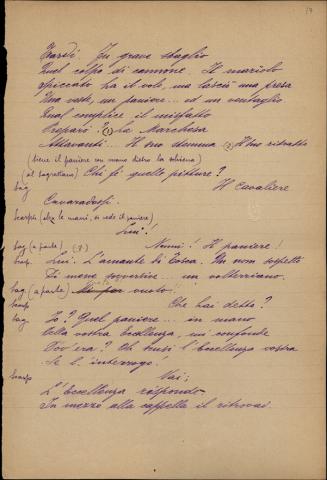 Tardi. Fu grave sbaglio
Quel colpo di cannone. Il mariolo
Spiccato ha il volo, ma lasciò una presa
Una veste, un paniere... ed un ventaglio
Qual complice il misfatto
Preparò? (1) La Marchesa
Attavanti... Il suo stemma (2) Il suo ritratto
(tiene il paniere con mano dietro la schiena)
(al sagrestano) Chi fe' quelle pitture?
Sag Il Cavaliere
Cavaradossi.
Scarpia (alza le mani, si vede il paniere)
Lui!
Sag (a parte) Numi! Il paniere!
Scarp. Lui. L'amante di Tosca. Un uom sospetto
Di mene sovversive... un volterriano.
Sag (a parte) vuoto!
Scarp Che hai detto?
Sag Io? Quel paniere... in mano
Della vostra Eccellenza, mi confonde
Dov'era? Oh scusi l'Eccellenza vostra
Se L'interrogo!
Scarp Vai;
L'Eccellenza risponde.
In mezzo alla cappella il ritrovai.